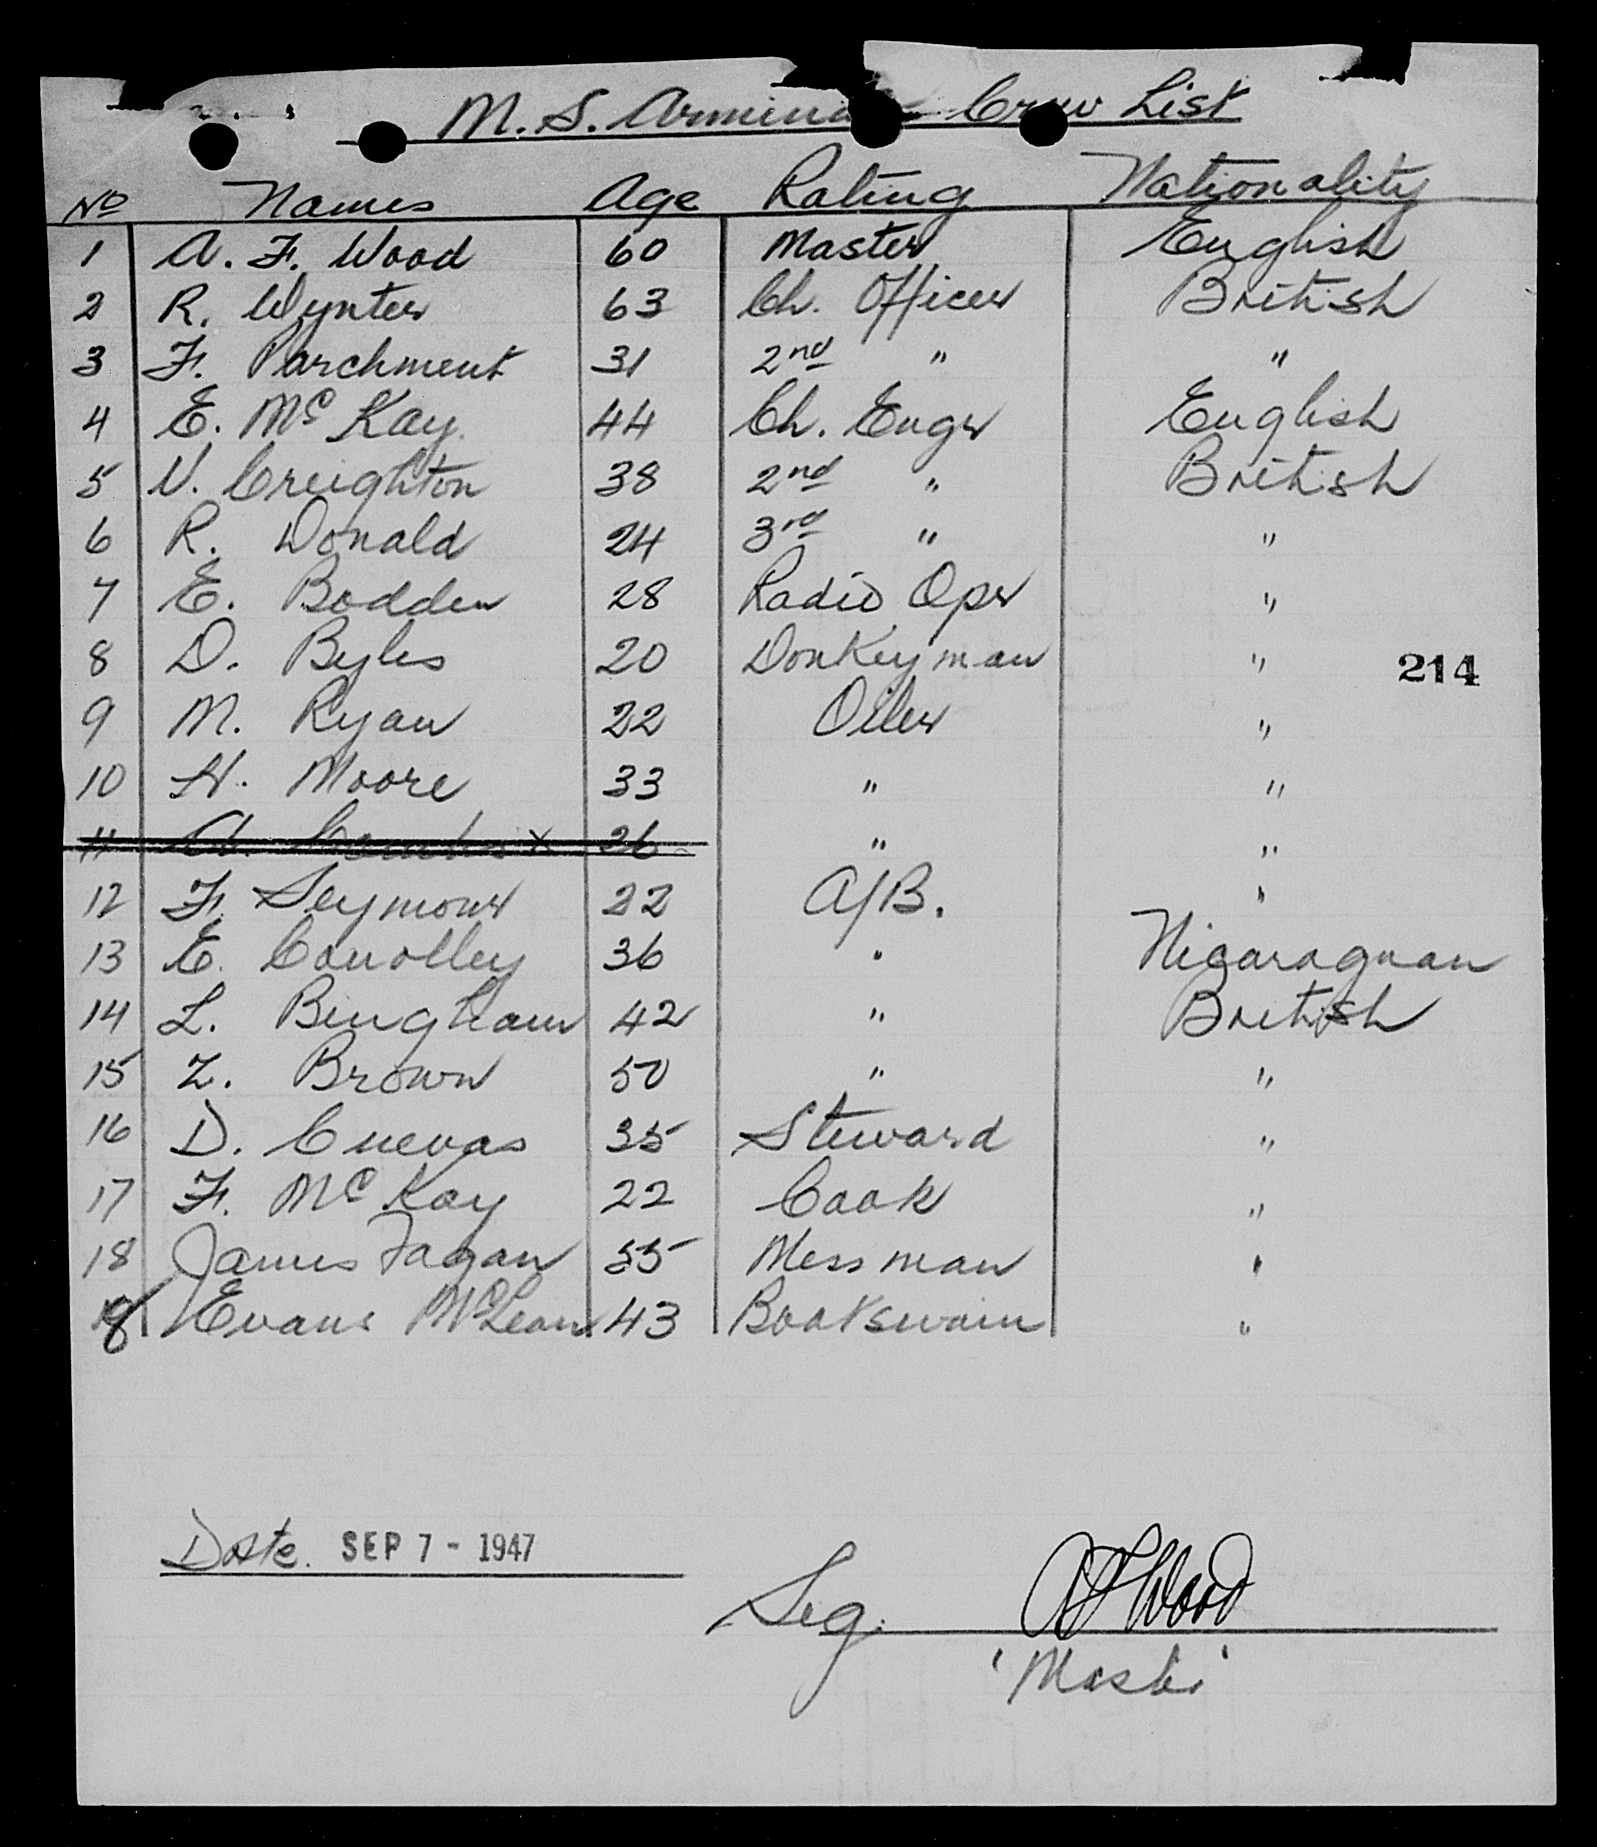 M. S. Armin Crew List
No Names Age Rating Nationality
1 A. F. Wood 60 Master English
2 R. Wynter 63 Ch. Officer British
3 F. Parchment 31 2nd " "
4 E. Mc Kay. 44 Ch. Engr English
5 V. Creighton 38 2nd " British
6 R. Donald 24 3rd " "
7 E. Bodden 28 Radio Oper "
8 D. Byles 20 Donkeyman "
214
9 M. Ryan 22 Oiler "
10 H. Moore 33 " "
11 A. x 26 " "
12 F. Seymour 22 A/B. "
13 E. Conolley 36 " Nicaraguan
14 L. Bingham 42 " British
15 Z. Brown 50 " "
16 D. Cuevas 35 Steward "
17 F. Mc Kay 22 Cook "
18 James Fagan 35 Mess man "
Evans McLean 43 Boatswain "
Date. SEP 7 - 1947
Sig. A F Wood
'Master'